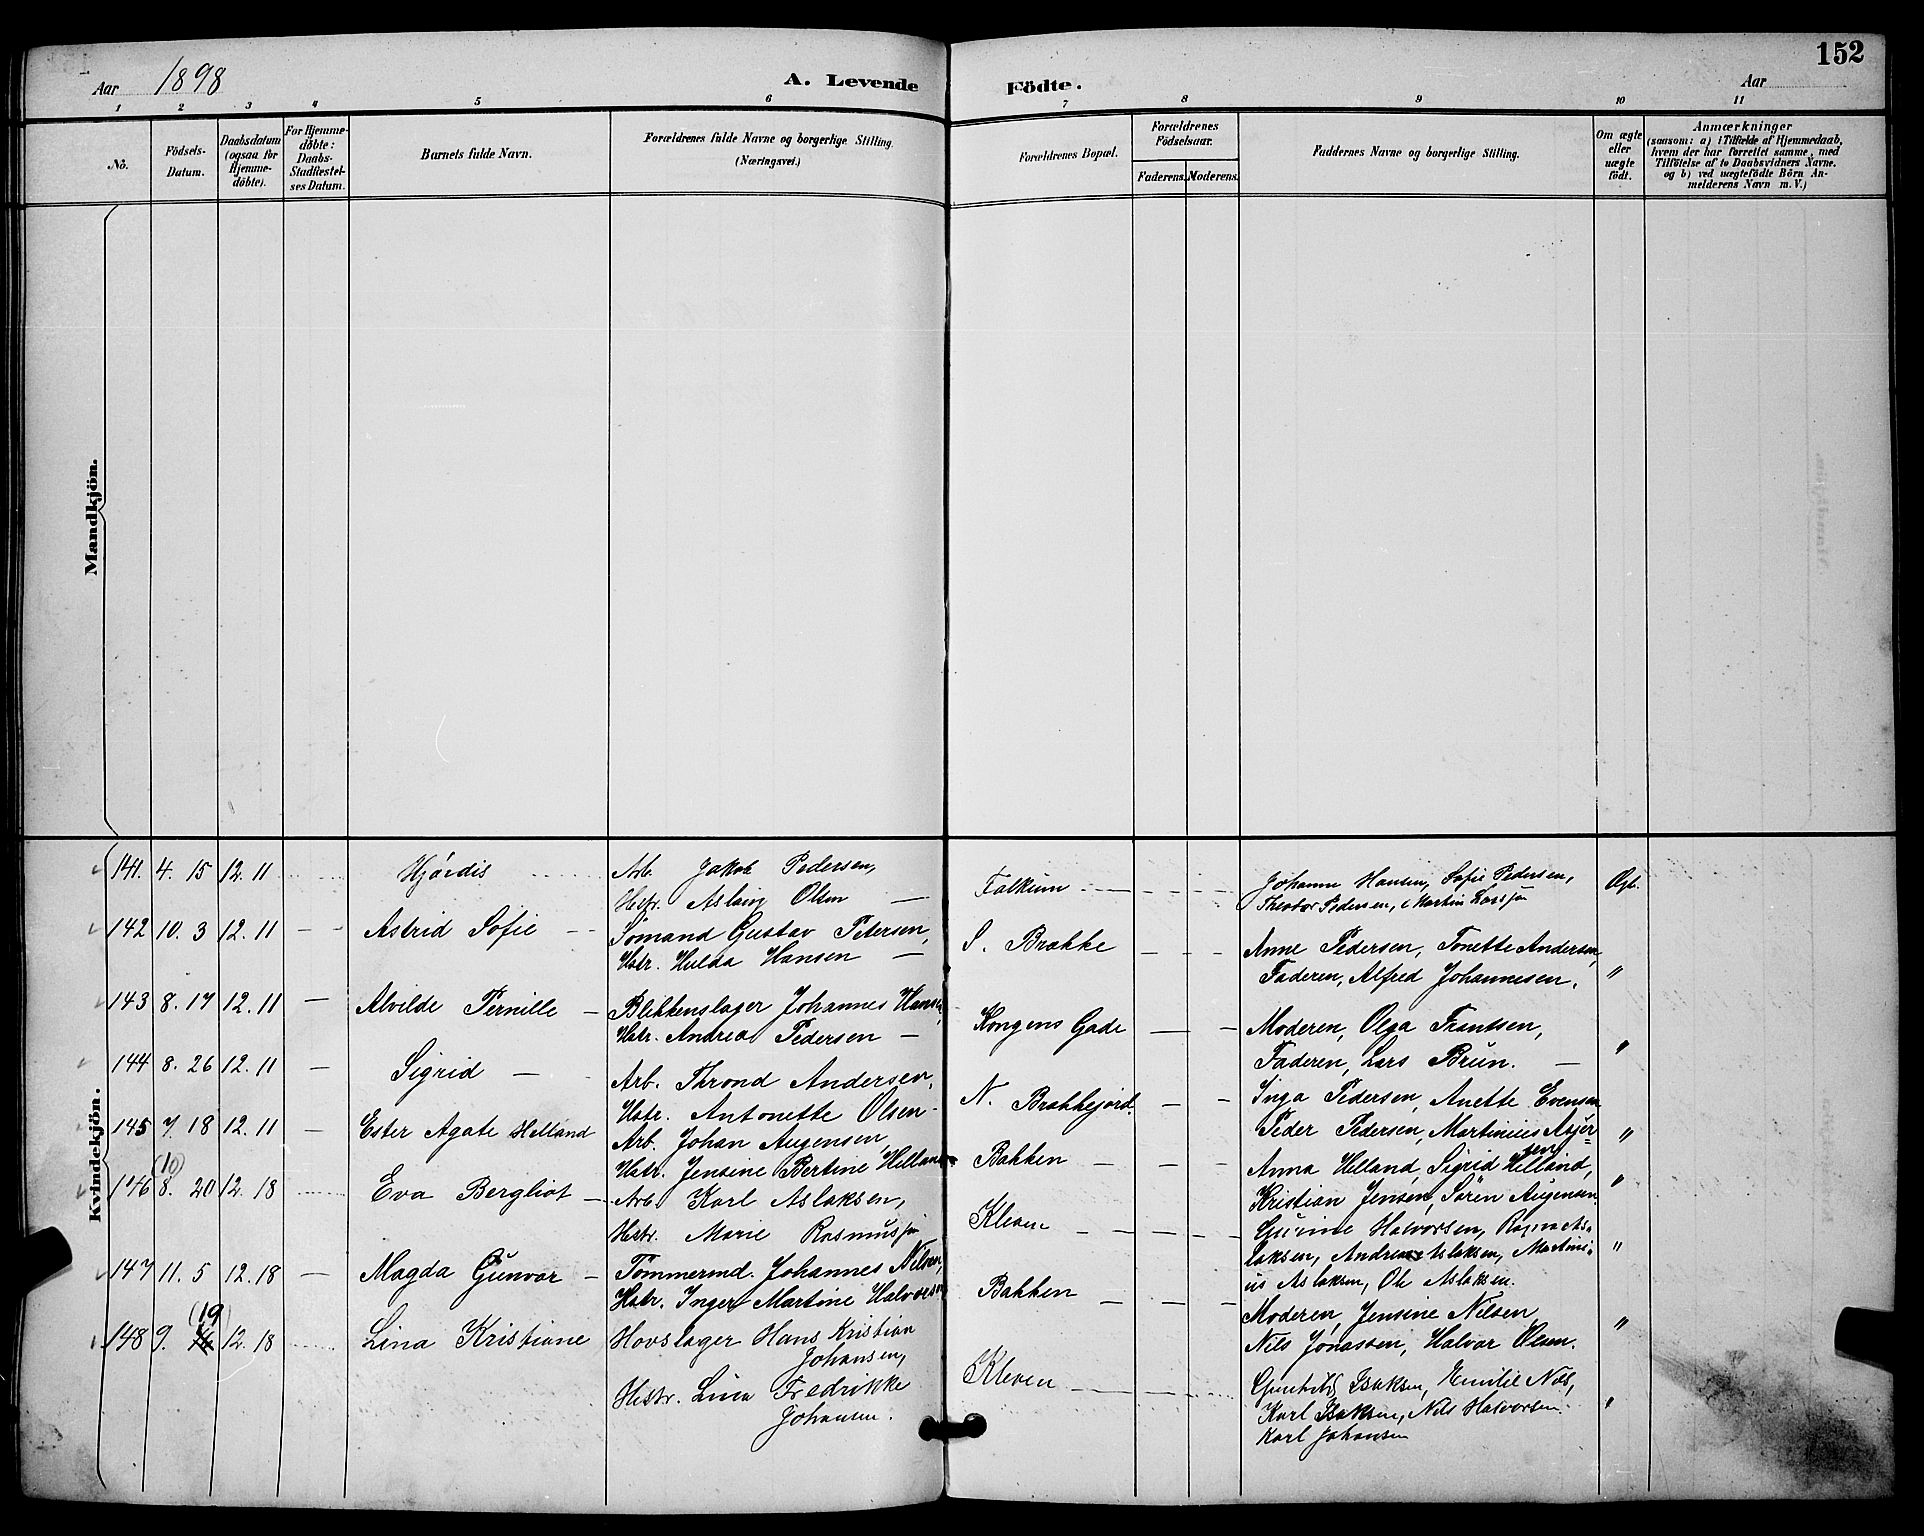 152
Aar 1898 A. Levende Födte. Aar
1 2 3 4 5 6 7 8 9 10 11
No.
Födsels-Datum.
Daabsdatum (ogsaa for Hjemme-döbte).
For Hjemme-döbte: Daabs-Stadfæstel-ses Datum.
Barnets fulde Navn.
Forældrenes fulde Navne og borgerlige Stilling.
(Næringsvei.)
Forældrenes Bopæl.
Forældrenes Födselsaar.
Faderens. Moderens.
Faddernes Navne og borgerlige Stilling.
Om ægte eller uægte födt.
Anmærkninger
(saasom: a) i Tilfælde af Hjemmedaab,
hvem der har forrettet samme, med
Tilföielse af to Daabsvidners Navne.
og b) ved uægtefödte Börn An-
melderens Navn m. V.)
Mandkjön.
Kvindekjön.
141. 4. 15 12. 11 Hjördis Arb. Jakob Pedersen, Falkum Johanne Hansen, Sofie Pedersen, Ogt.
Hstr. Aslaug Olsen Theodor Pedersen, Martin
142 10. 3 12. 11 Astrid Sofie Sömand Gustav Petersen, S. Brække Anne Pedersen, Tonette Andersen,
Hstr. Hulda Hansen Faderen, Alfred Johannesen. "
143 8. 17 12. 11 Alvilde Pernille Blikkenslager Johannes Hansen, Kongens Gade Moderen, Olga Frantsen,
Hstr. Andrea Pedersen Faderen, Lars Brun. "
144 8. 26 12. 11 Sigrid Arb. Thrond Andersen, N. Brækkejord Inga Pedersen, Anette Evensen
Hstr. Antonette Olsen Peder Pedersen, Martinius Asjer=sen "
145 7. 18 12. 11 Ester Agate Helland Arb. Johan Augensen, Bakken Anna Helland, Sigrid Helland,
Hstr. Jensine Bertine Helland Kristian Jensen, Sören Augensen "
146 8. (10) 20 12. 18 Eva Bergliot Arb. Karl Aslaksen, Kleven Gurine Halvorsen, Ragna As-
Hstr. Marie Rasmussen laksen, Andreas Aslaksen, Martini- "
us Aslaksen, Ole Aslaksen.
147 11. 5 12. 18 Magda Gunvor Tömmermd. Johannes Nilsen, Bakken Moderen, Jensine Nilsen
Hstr. Inger Martine Halvorsen Nils Jonassen, Halvar Olsen. "
148 9. (19) 12. 18 Lina Kristiane Hovslager Hans Kristian Kleven Gunhild Isaksen, Emilie Næs,
Johansen, Karl Isaksen, Nils Halvorsen. "
Hstr. Lina Fredrikke Karl Johansen
Johansen.